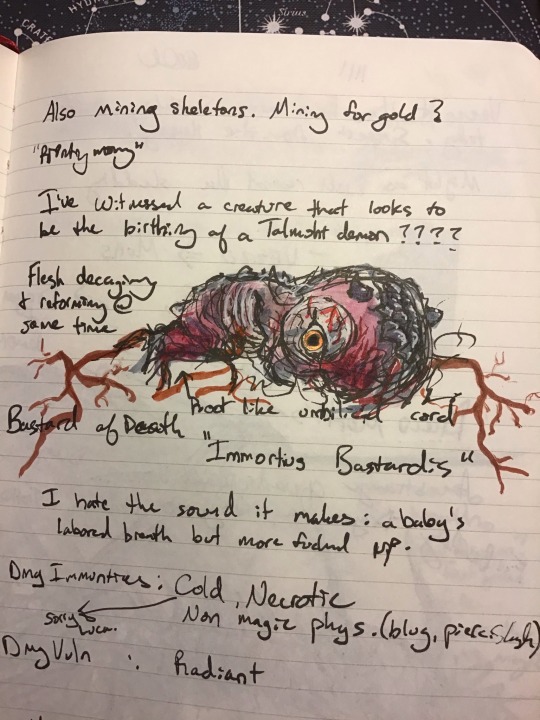 CRATE
HY
Sirius
Also mining skeletons. Mining for gold }
"Printing money"
I've witnessed a creature that looks to
be the birthing of a Talmoht demon ????
Flesh decaying
& reforming @
same time
Root like umbilical cord
Bastard of Death
"Immortius Bastardis"
I hate the sound it makes: a baby's
labored breath but more fucked up.
Dmg Immunities: Cold, Necrotic
Non magic phys. (blug, pierc, Slash)
sorry
Dmg Vuln : Radiant